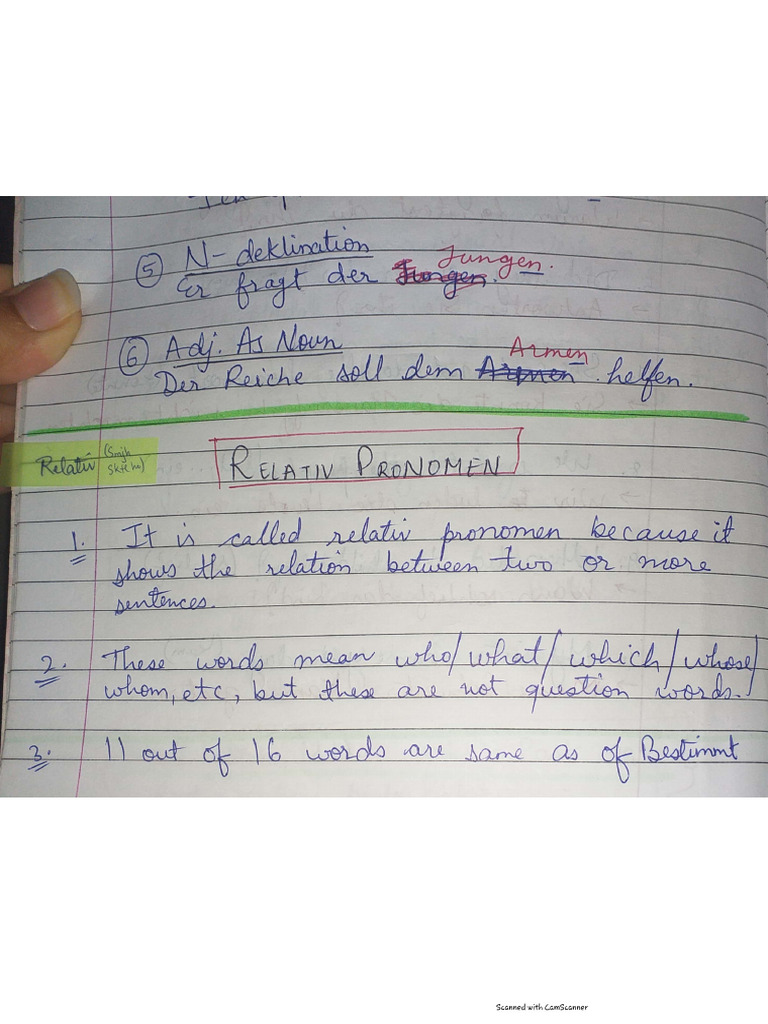 ⑤ N-deklination
Er fragt der Jungen. Jungen.
⑥ Adj. As Noun
Der Reiche soll dem Armen Armen helfen.
Relativ
RELATIV PRONOMEN
1. It is called relativ pronomen because it
shows the relation between two or more
sentences.
2. These words mean who/what/which/whose/
whom, etc, but these are not question words.
3. 11 out of 16 words are same as of Bestimmt
Scanned with CamScanner